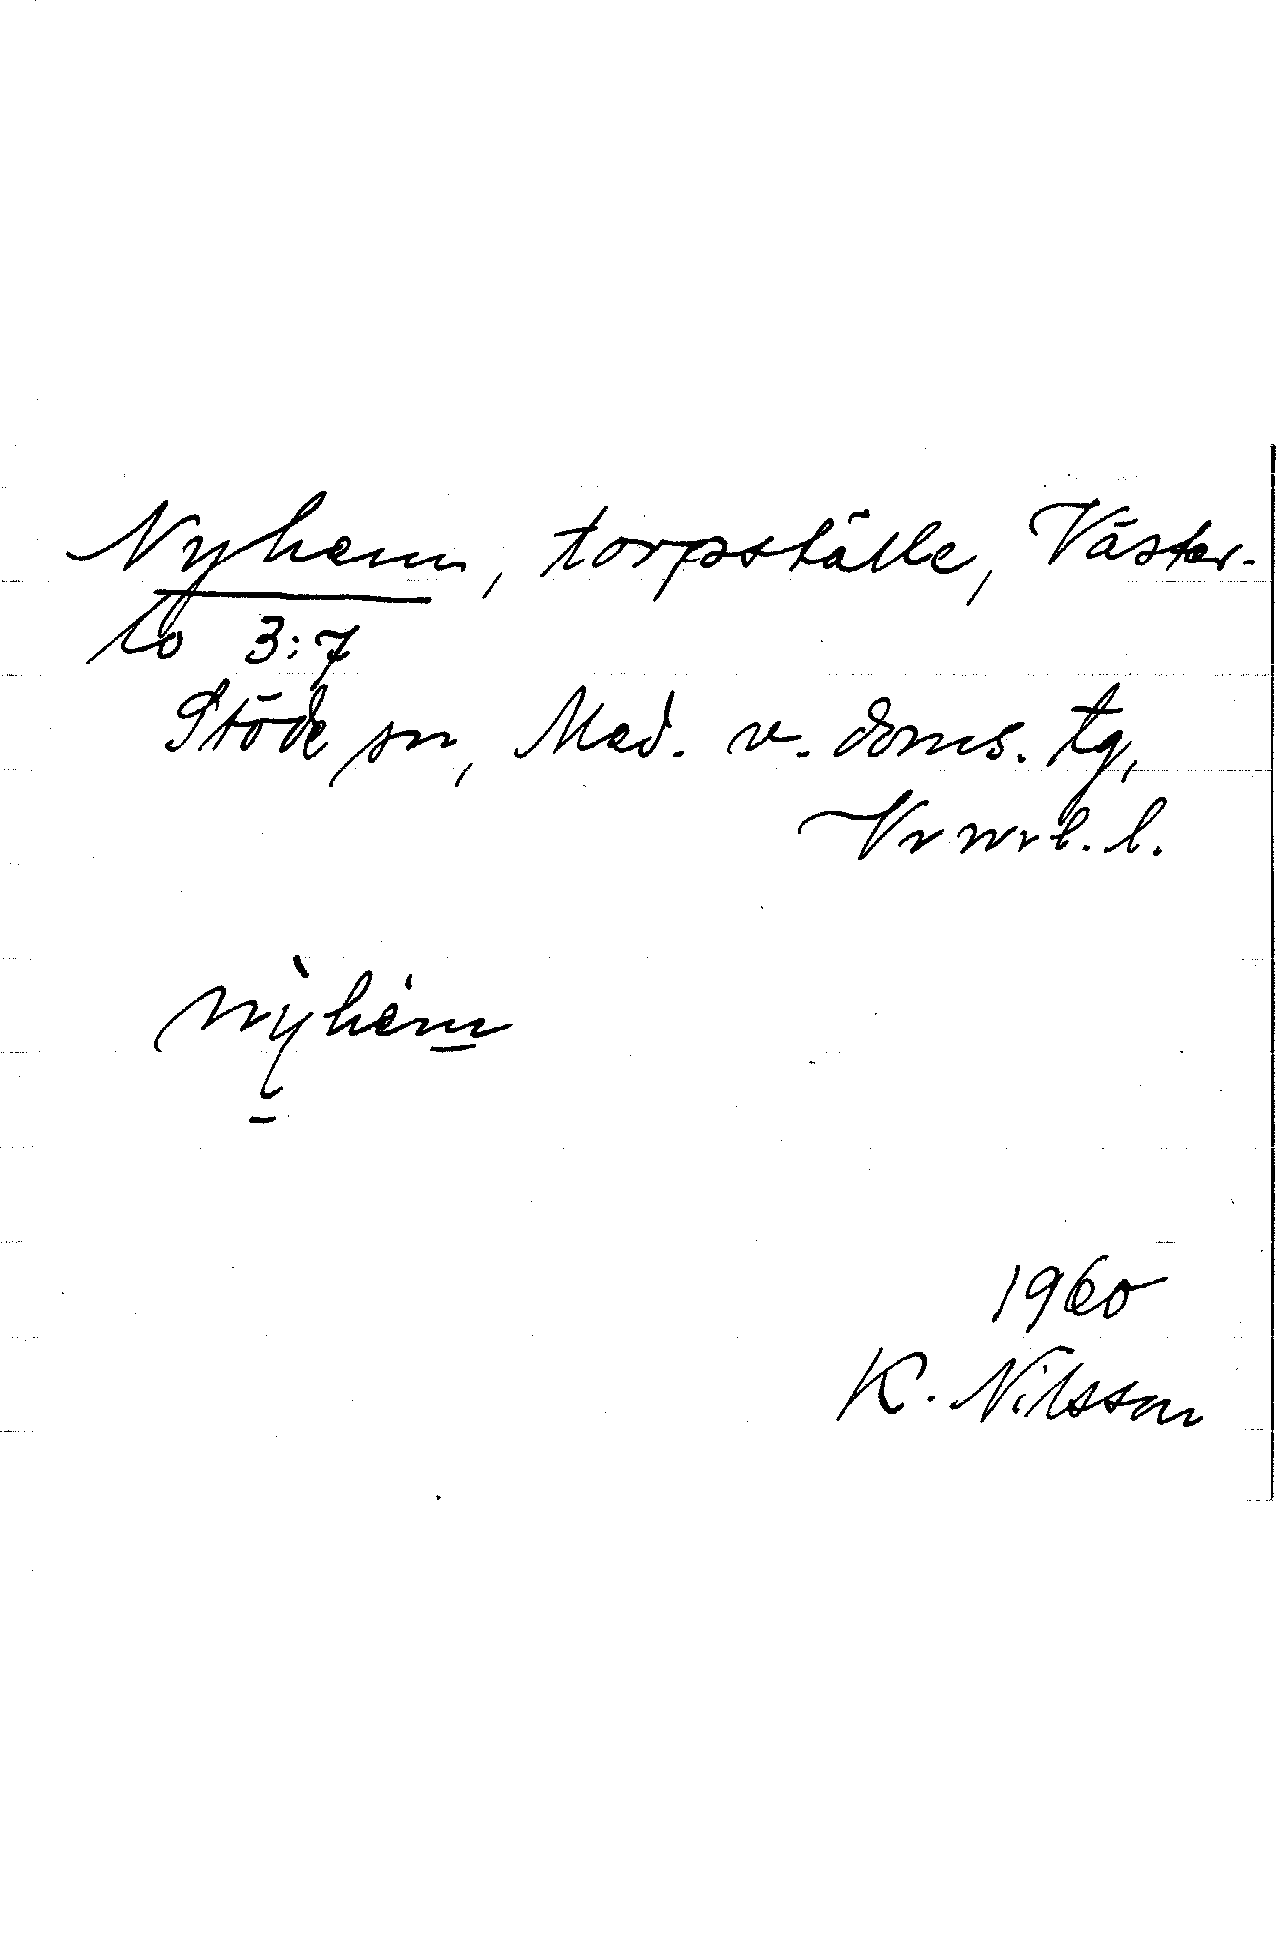 Nyhem, torpställe, Väster-
lo 3:7
Stöde sn, Med. v. doms. tg,
Vrnrl. l.
nỳhém
1960
K. Nilsson